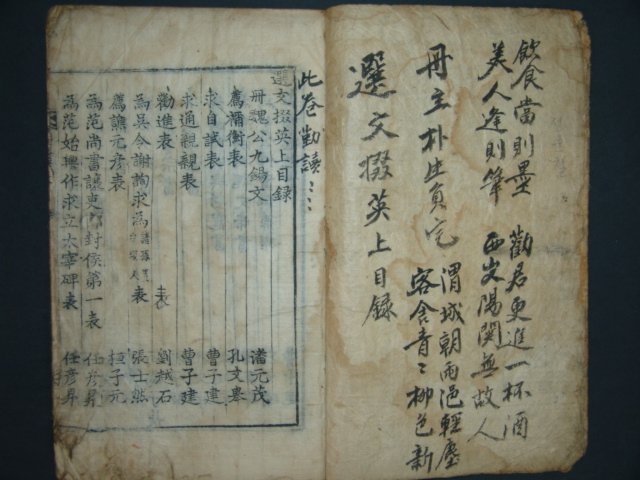 飮食當則墨 勸君更進一杯酒
美人逢則筆 西出陽関無故人
冊主朴生員宅 渭城朝雨浥輕塵
客舍青〻柳色新
選文掇英上目録
此卷勸讀〻〻
選文掇英上目録
冊魏公九錫文 潘元茂
薦禰衡表 孔文擧
求自試表 曹子建
求通親親表 曹子建
勸進表 表 劉越石
爲吳令謝詢求爲諸孫置守冢人表 張士然
薦譙元彦表 桓子元
爲范尚書讓吏部封侯第一表 任彦昇
爲范始興作求立太宰碑表 任彦昇